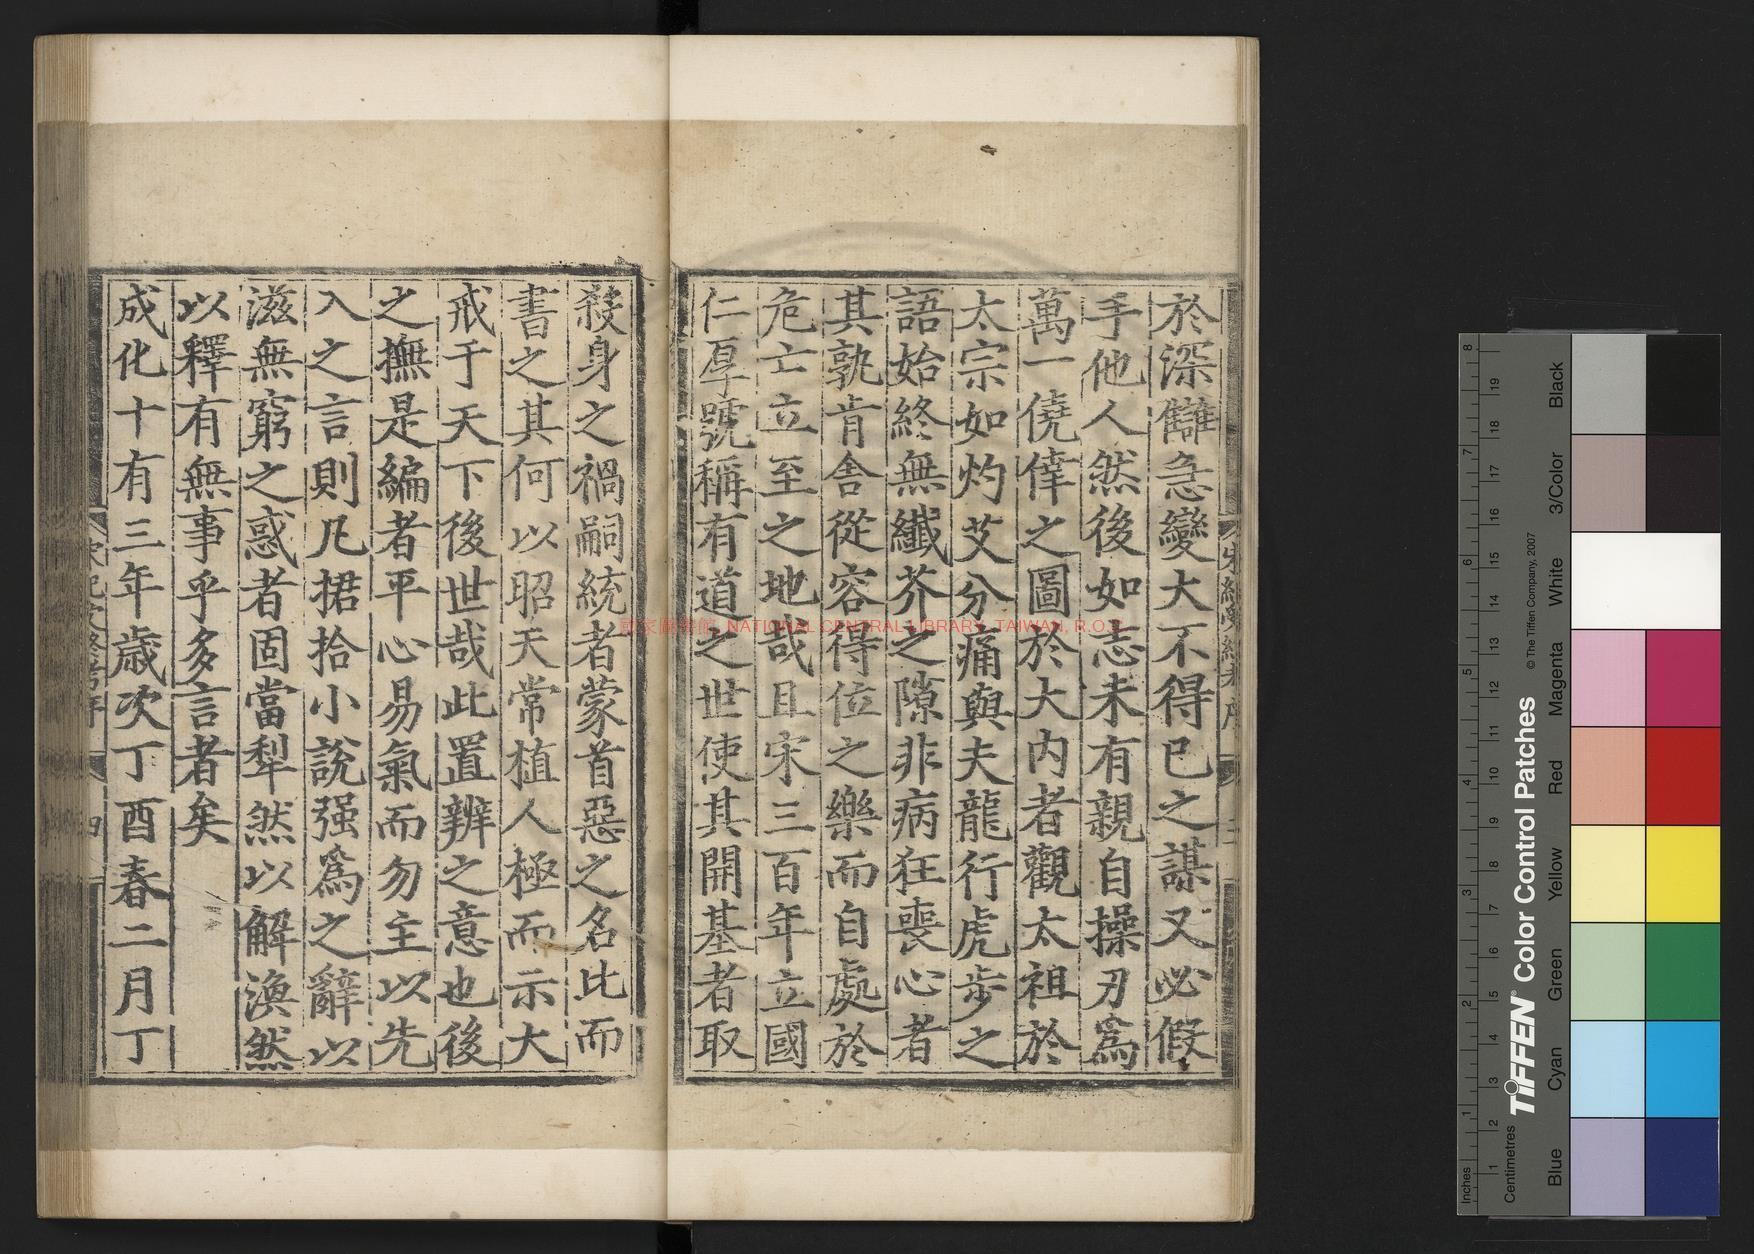 於深讎急變大不得已之謀又必假
手他人然後如志未有親自操刃爲
萬一僥倖之圖於大内者觀太祖於
太宗如灼艾分痛與夫龍行虎步之
語始終無纖芥之隙非病狂喪心者
其孰肯舍從容得位之樂而自處於
危亡立至之地哉且宋三百年立國
仁厚號稱有道之世使其開基者取
殺身之禍嗣統者蒙首惡之名比而
書之其何以昭天常植人極而示大
戒于天下後世哉此置辨之意也後
之撫是編者平心易氣而勿主以先
入之言則凡捃拾小說强爲之辭以
滋無窮之惑者固當犁然以解渙然
以釋有無事乎多言者矣
成化十有三年歲次丁酉春二月丁
四
國家圖書館 NATIONAL CENTRAL LIBRARY, TAIWAN, R.O.C
Inches 1 2 3 4 5 6 7 8
Centimetres 1 2 3 4 5 6 7 8 9 10 11 12 13 14 15 16 17 18 19
TIFFEN® Color Control Patches
© The Tiffen Company, 2007
Blue Cyan Green Yellow Red Magenta White 3/Color Black